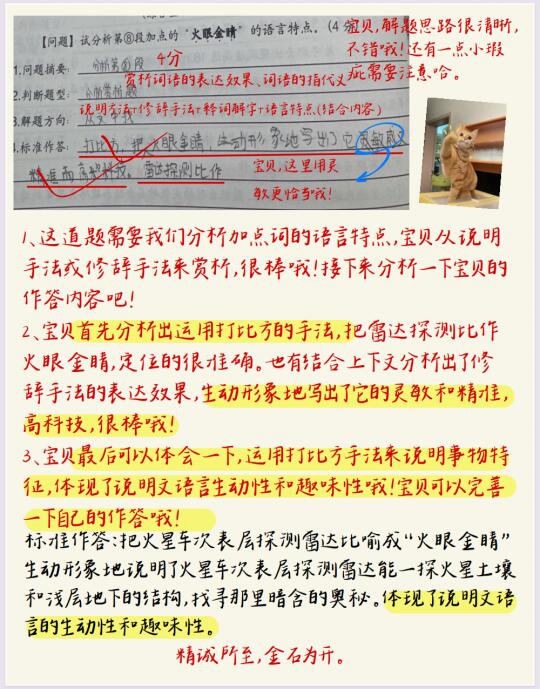 【问题】试分析第⑧段加点的“火眼金睛”的语言特点。(4分
宝贝,解题思路很清晰,
不错哦!还有一点小瑕
疵需要注意哈。
1.问题摘要: 分析第⑧段 4分
赏析词语的表达效果、词语的指代义
2.判断题型: 分析赏析题
说明方法+修辞手法+释词解字+语言特点(结合内容)
3.解题方向:
4.标准作答: 打比方,把火眼金睛,生动形象地写出了它灵敏感又
精准而高科技。雷达探测比作
宝贝,这里用灵
敏更恰当哦!
1、这道题需要我们分析加点词的语言特点,宝贝从说明
手法或修辞手法来赏析,很棒哦!接下来分析一下宝贝的
作答内容吧!
2、宝贝首先分析出运用打比方的手法,把雷达探测比作
火眼金睛,定位的很准确。也有结合上下文分析出了修
辞手法的表达效果,生动形象地写出了它的灵敏和精准,
高科技,很棒哦!
3、宝贝最后可以体会一下,运用打比方手法来说明事物特
征,体现了说明文语言生动性和趣味性哦!宝贝可以完善
一下自己的作答哦!
标准作答:把火星车次表层探测雷达比喻成“火眼金睛”
生动形象地说明了火星车次表层探测雷达能一探火星土壤
和浅层地下的结构,找寻那里暗含的奥秘。体现了说明文语
言的生动性和趣味性。
精诚所至,金石为开。